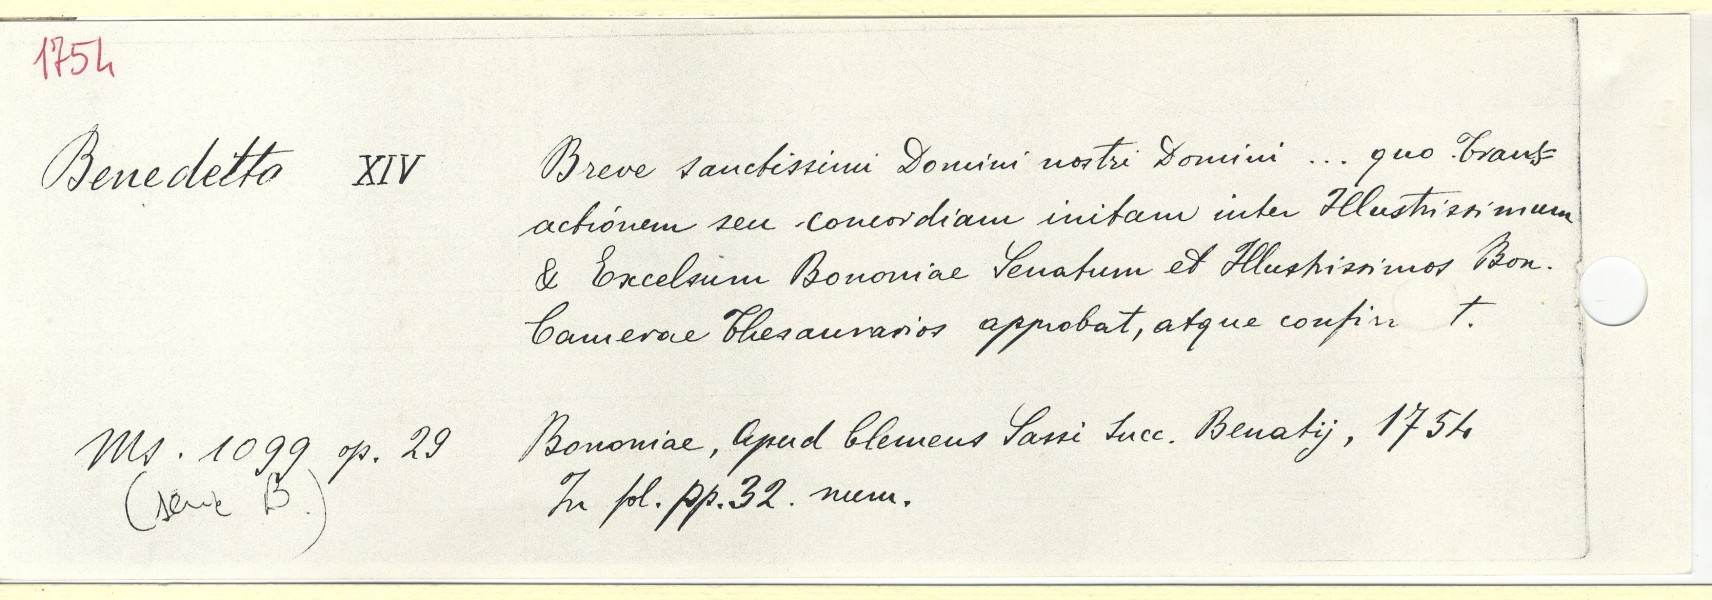 1754
Benedetto XIV
Breve sanctissimi Domini nostri Domini ... quo Trans=
actionem seu concordiam initam inter Illustrissimum
& Excelsum Bononiae Senatum et Illustrissimos Bon.
Camerae Thesaurarios approbat, atque confir t.
Ms. 1099 op. 29
(serie B.)
Bononiae, Apud Clemens Sassi Succ. Benatij, 1754
In fol. pp. 32. num.